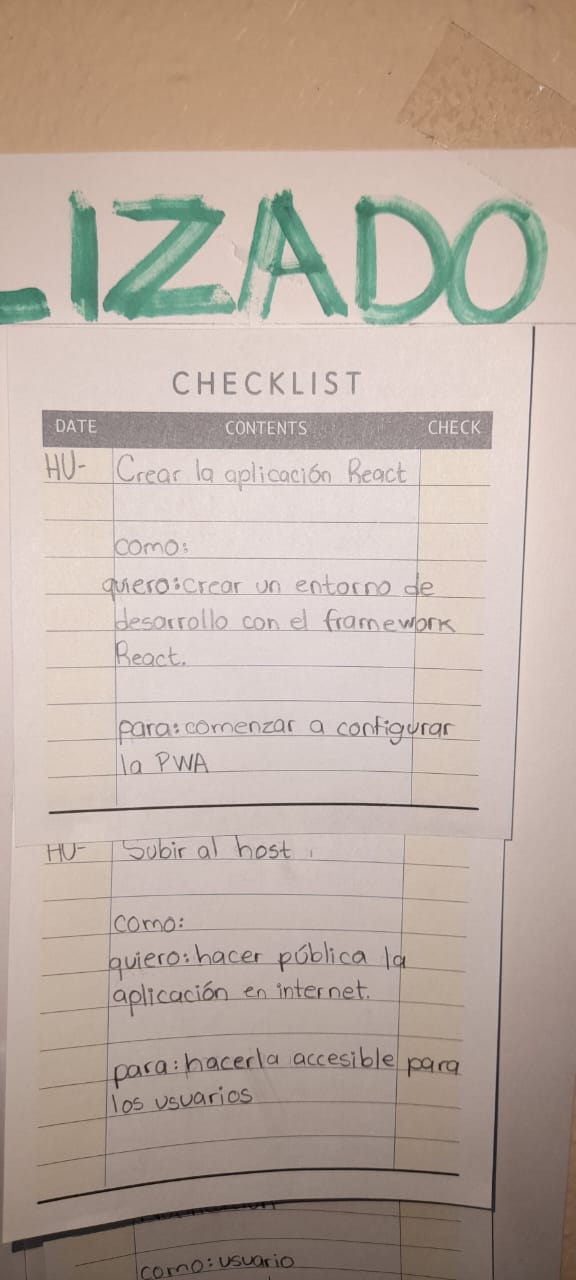 LIZADO
CHECKLIST
DATE CONTENTS CHECK
HU- Crear la aplicación React
como:
quiero: crear un entorno de
desarrollo con el framework
React.
para: comenzar a configurar
la PWA
HU- Subir al host
como:
quiero: hacer pública la
aplicación en internet.
para: hacerla accesible para
los usuarios
como: usuario